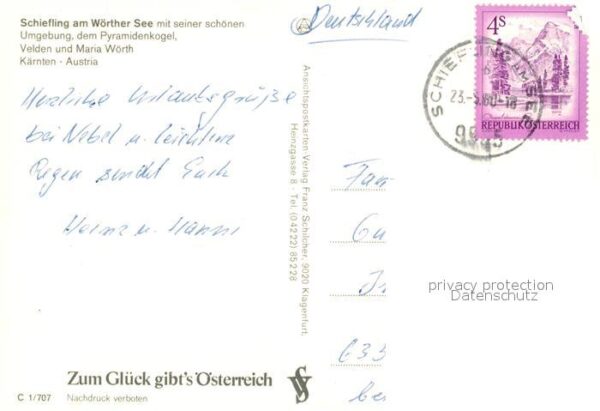 Schiefling am Wörther See mit seiner schönen
Umgebung, dem Pyramidenkogel,
Velden und Maria Wörth
Kärnten - Austria
Deutschland
4S
REPUBLIK ÖSTERREICH
SCHIEFLING AM SEE
23.-5.80-18
Herzliche Urlaubsgrüße
bei Nebel u. leichtem
Regen sendet Euch
Heinz u. Hanni
Ansichtspostkarten Verlag Franz Schilcher, 9020 Klagenfurt,
Heinzgasse 8 - Tel. (04222) 85 2 28
Fam
privacy protection
Datenschutz
633
bei
Zum Glück gibt's Österreich
C 1/707 Nachdruck verboten